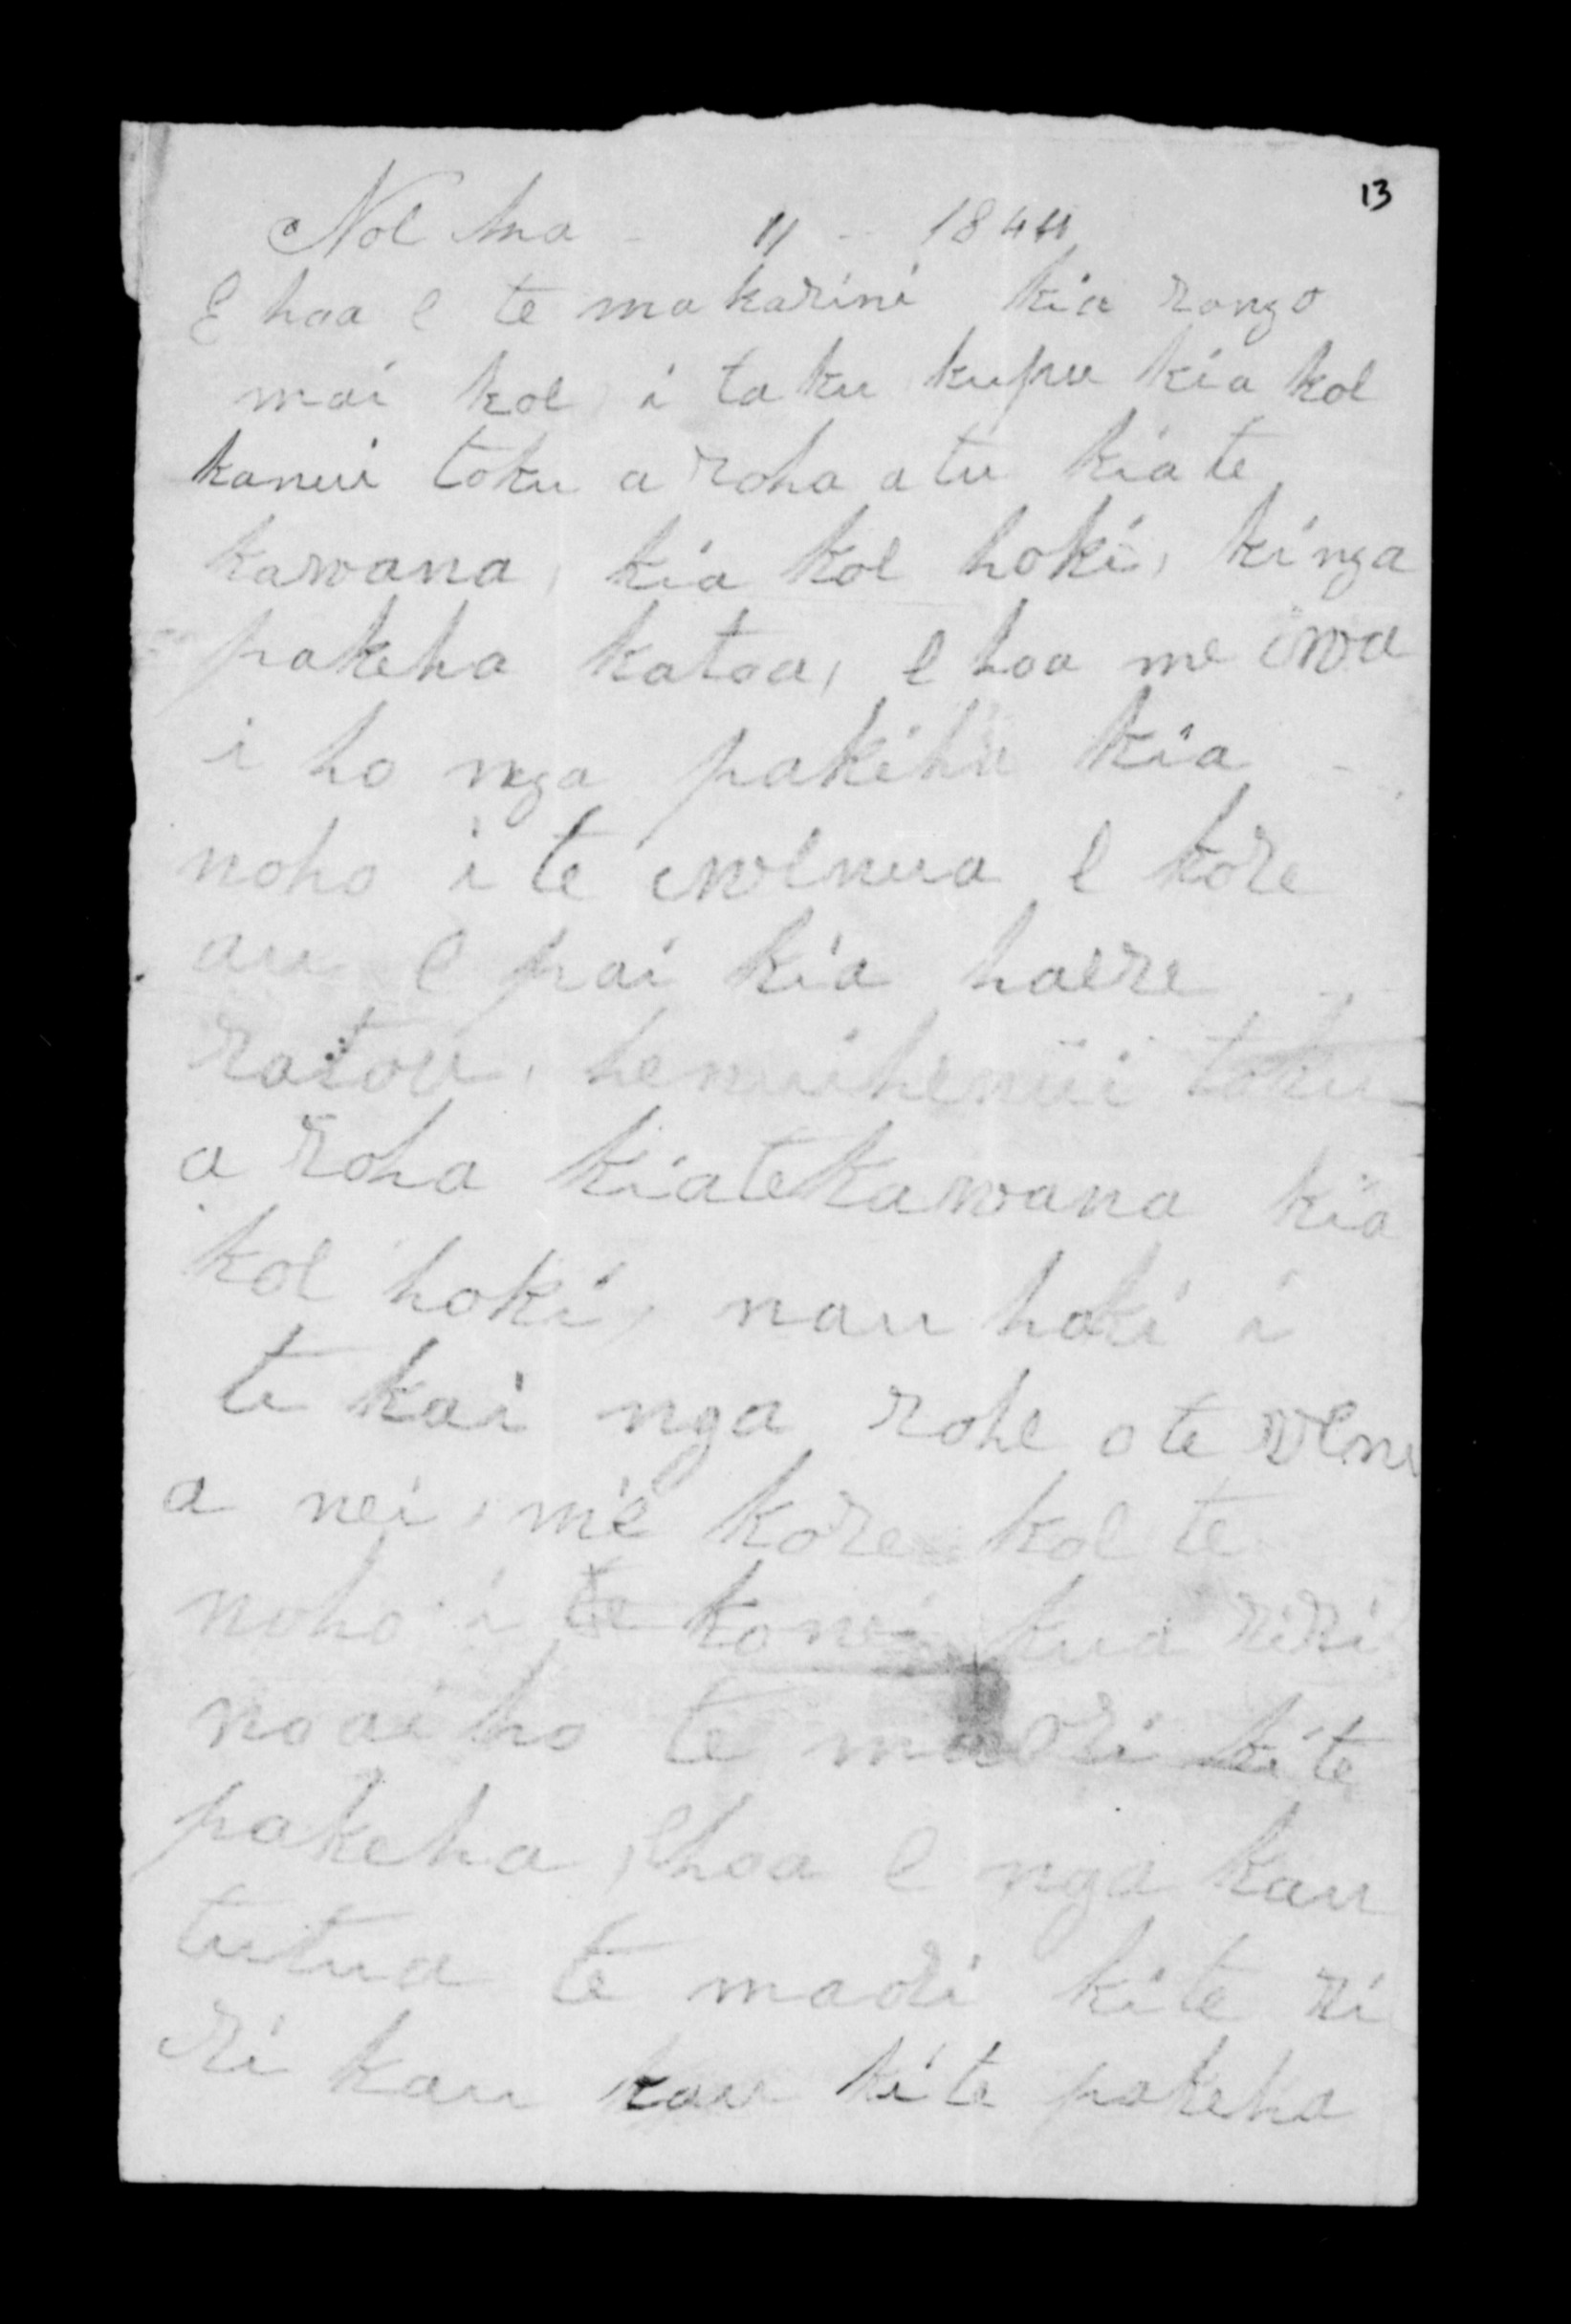 13
Noe ma - 11 - 1844
E hoa e te makarini kia rongo
mai koe i taku kupu kia koe
kanui toku a roha atu kia te
kawana, kia koe hoki, ki nga
pakeha katoa, e hoa me wa
i ho nga pakiha kia
noho i te wenua e kore
au e pai kia haere
ratou, henuihenui toku
a roha kiatekawana kia
koe hoki, nau hoki i
te kai nga rohe o te wenu
a nei, me kore koe te
noho i kua riri
noaiho te maori ki te
pakeha, Ehoa e nga kau
tutua te maori kite ri
ri kau kau ki te pakeha